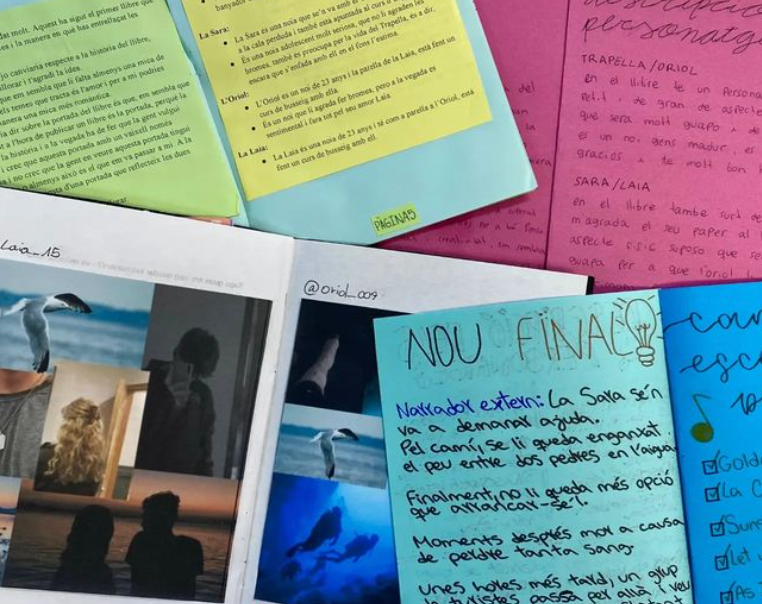 dat molt. Aquest ha sigut el primer llibre que
es i la manera en què has entrellaçat les
jo canviaria respecte a la història del llibre,
llorar i t'agradi la idea.
que em sembla que li falta almenys una mica de
els temes que tracta és l'amor i per a mi podries
manera una mica més romàntica.
a dir sobre la portada del llibre és que, em sembla que
t a l'hora de publicar un llibre és la portada, perquè la
la història i a la vegada ha de fer que la gent vulgui
i crec que aquesta portada amb un vaixell només
i no crec que la gent en veure aquesta portada tingui
o almenys això és el que em va passar a mi. A la
ta d'una portada que reflecteix les dues
banyador
La Sara:
La Sara és una noia que se'n va amb el
a la cala perduda i també està apuntada al curs d'
És una noia adolescent molt nerviosa, que no li agraden les
bromes, també es preocupa per la vida del Trapella, és a dir,
encara que s'enfada amb ell en el fons l'estima.
L'Oriol:
L'Oriol és un noi de 23 anys i la parella de la Laia, està fent un
curs de busseig amb ell.
És un noi que li agrada fer bromes, però a la vegada es
sentimental i fara tot pel seu amor Laia.
La Laia:
La Laia és una noia de 23 anys i té com a parella a l'Oriol, està
fent un curs de busseig amb ell.
PÀGINA 5
descripció
personatg
TRAPELLA/ORIOL
en el llibre te un persona
petit i de gran de aspecte
que sera molt guapo i de
es un noi gens madur, es
gracios i te molt bon
SARA/LAIA
en el llibre tambe surt de
m agrada el seu paper al
aspecte fisic suposo que se
guapa per a que l'oriol
Laia_15
@oriol_009
NOU FINAL
Narrador extern: La Sara se'n
va a demanar ajuda.
Pel camí, se li queda enganxat
el peu entre dos pedres en l'aigua.
Finalment, no li queda més opció
que arrancar-se'l.
Moments després mor a causa
de perdre tanta sang.
Unes hores més tard, un grup
de turistes passa per allà i veu
can
esc
Gold
La C
Suns
Let
As